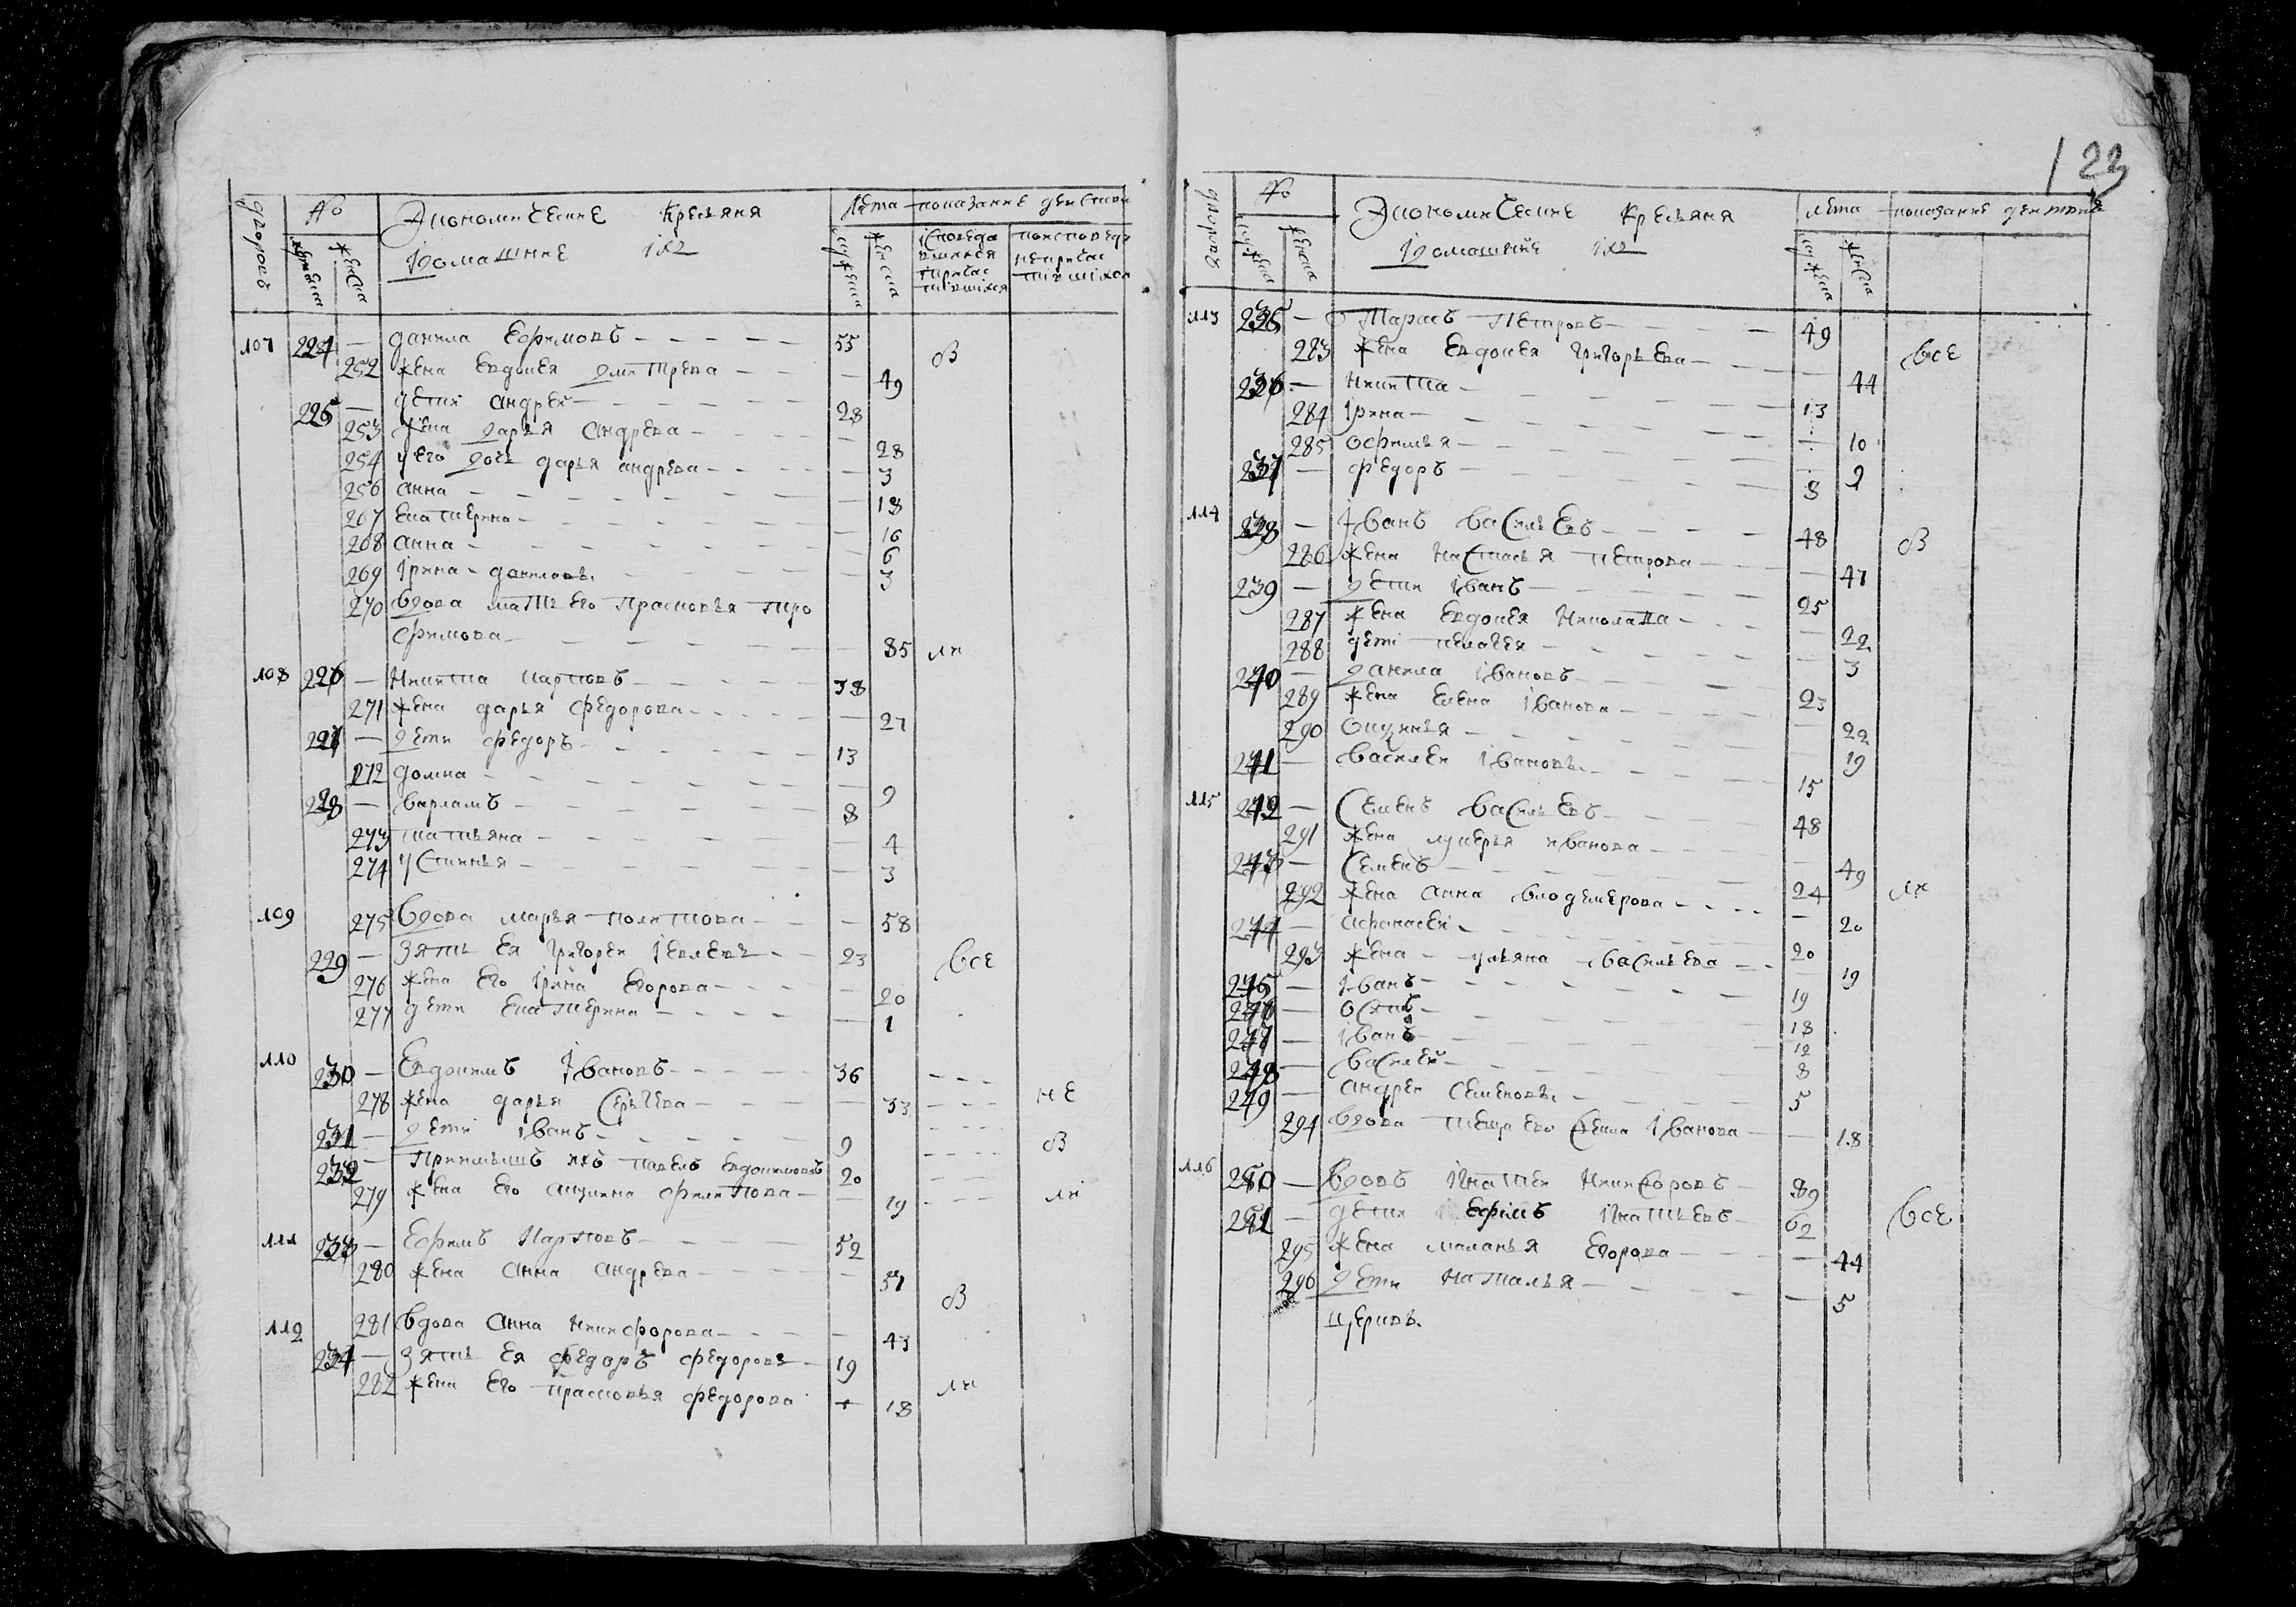 123
дворовъ № Экономические Крестьяня Лета показание действи
мужеска женска домашние ихъ мужеска женска исповеда вшихся причас тившихся неисповеда непричас тившихся
107 224 — данила Ефимовъ 55
252 жена Евдокея дмитрева — 49 в
225 — дети андрей 28
253 жена дарья андрева — 28
254 у его дочь дарья андрева — 3
256 анна — 18
267 Екатерина — 16
268 анна — 6
269 Ірина даниловы — 3
270 вдова мать его Прасковья Тро
фимова — 85 ли
108 226 — Никита Карповъ 38
271 жена дарья Федорова — 27
227 — дети федоръ 13
272 домна — 9
228 — варламъ 8
273 татьяна — 4
274 устинья — 3
109 275 вдова марья политова — 58
229 — зять ея григореи Іевлевъ 23 все
276 жена его Ірина Егорова — 20
277 дети Екатерина — 1
110 230 — Евдокимъ Івановъ 36
278 жена дарья Сергеева — 33 не
231 — дети іванъ 9 в
232 — Приимышъ ихъ павелъ Евдокимовъ 20
279 жена Его акулина филипова — 19 ли
111 233 — Ефимъ Карповъ 52
280 жена анна андрева — 51
в
112 281 вдова анна Никифорова — 43
234 — зять ея федоръ федоровъ 19
282 жена Его прасковья федорова — 18 ли
дворовъ № Экономические Крестьяня лета показание действа
мужеска женска домашние ихъ мужеска женска
113 235 — Тарасъ Петровъ 49
283 жена Евдокея григорьева — 44 все
236 — Никита 13
284 Ірина — 10
285 офимья — 2
237 — федоръ 8
114 238 — Іванъ васильевъ 48
286 жена настасья петрова — 47 в
239 — дети іванъ 25
287 жена Евдокея Николава — 22
288 деті пелагея — 3
240 — данила івановъ 23
289 жена Елена іванова — 22
290 окулинья 19
241 — василеи івановы 15
115 242 — Семенъ васильевъ 48
291 жена лукерья иванова — 49
243 — Семенъ 24 ли
292 жена анна владемерова — 20
244 — афанасеи 20
293 жена ульяна васильева — 19
245 — Іванъ 19
246 — осипъ 18
247 — іванъ 12
248 — василеи 8
249 — андреи семеновы 5
294 вдова теща ево Іванова — 18
116 250 — вдовъ Игнатеи Никифоровъ 89
251 — дети Ефимъ Игнатьевъ 62 все
295 жена маланья Егорова — 44
296 дети наталья — 5
церковь.